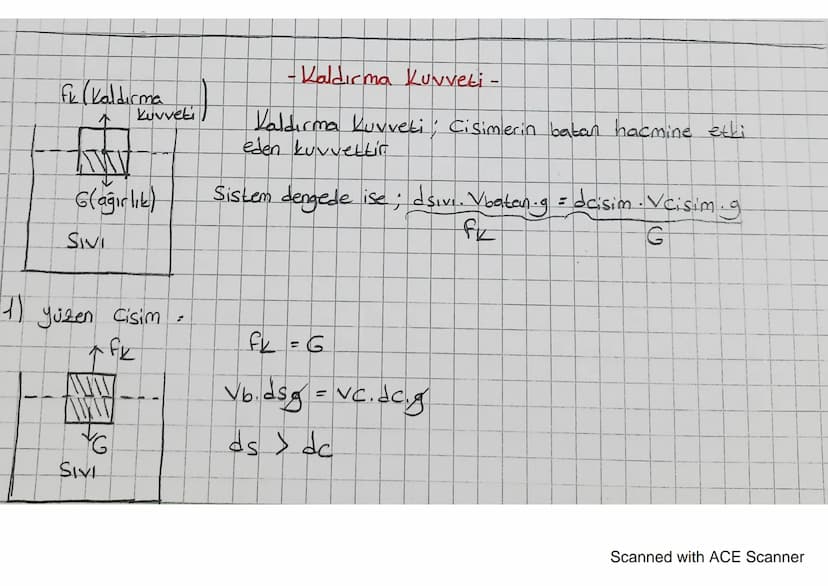 - Kaldırma Kuvveti -
fk (Kaldırma
kuvveti)
Kaldırma Kuvveti; Cisimerin batan hacmine etki
eden kuvvettir.
G(ağırlık)
Sıvı
Sistem dengede ise; dsıvı.Vbatan.g = dcisim.Vcisim.g
fk
G
1) yüzen cisim :
fk
fk = G
Vb.dsg = vc.dc.g
G
ds > dc
Sıvı
Scanned with ACE Scanner